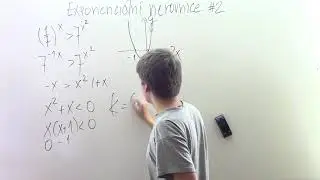 Exponenciální nerovnice #2
(1/7)^x > 7^x²
7^-1x > 7^x²
-x > x² /+x
x² + x < 0
x(x+1) < 0
0 -1
-1
K = (